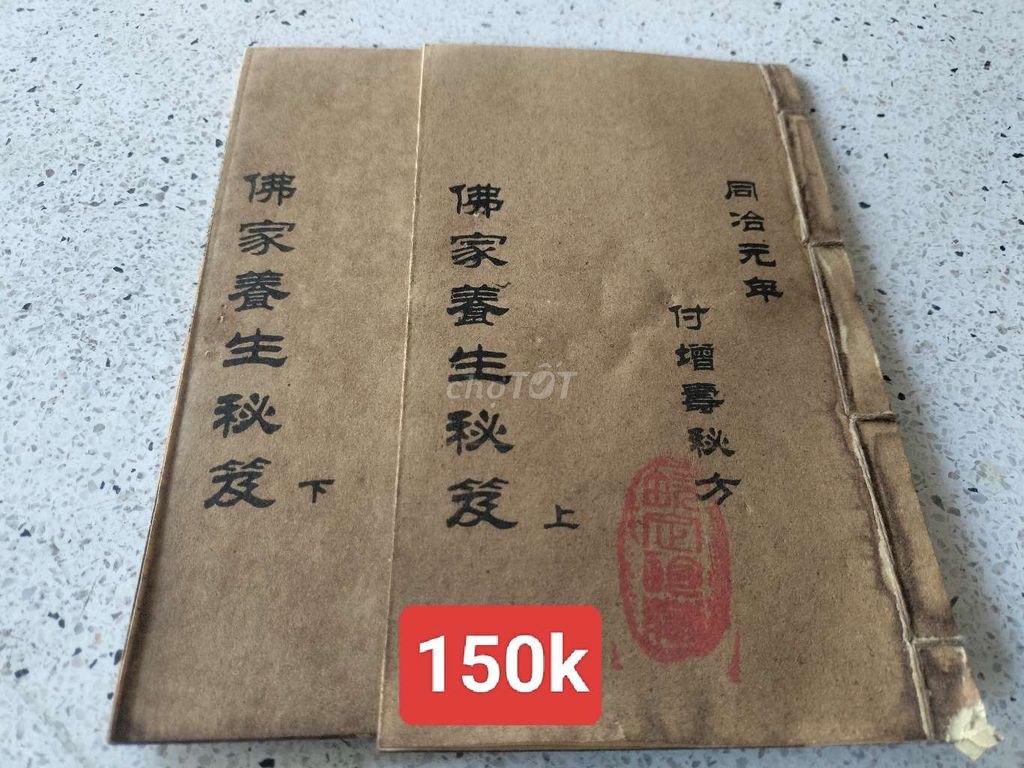 同治元年
付增壽秘方
佛家養生秘笈 上
佛家養生秘笈 下
chợTỐT
150k